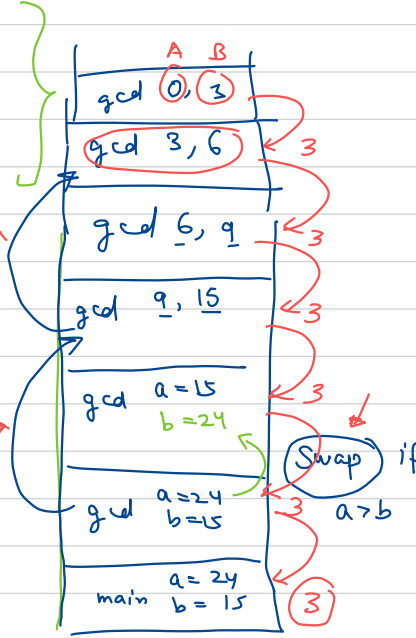 A B
gcd 0, 3
gcd 3, 6
3
gcd 6, 9
3
gcd 9, 15
3
gcd a=15
b=24
3
Swap if
a>b
gcd a=24
b=15
3
main a= 24
b= 15
3